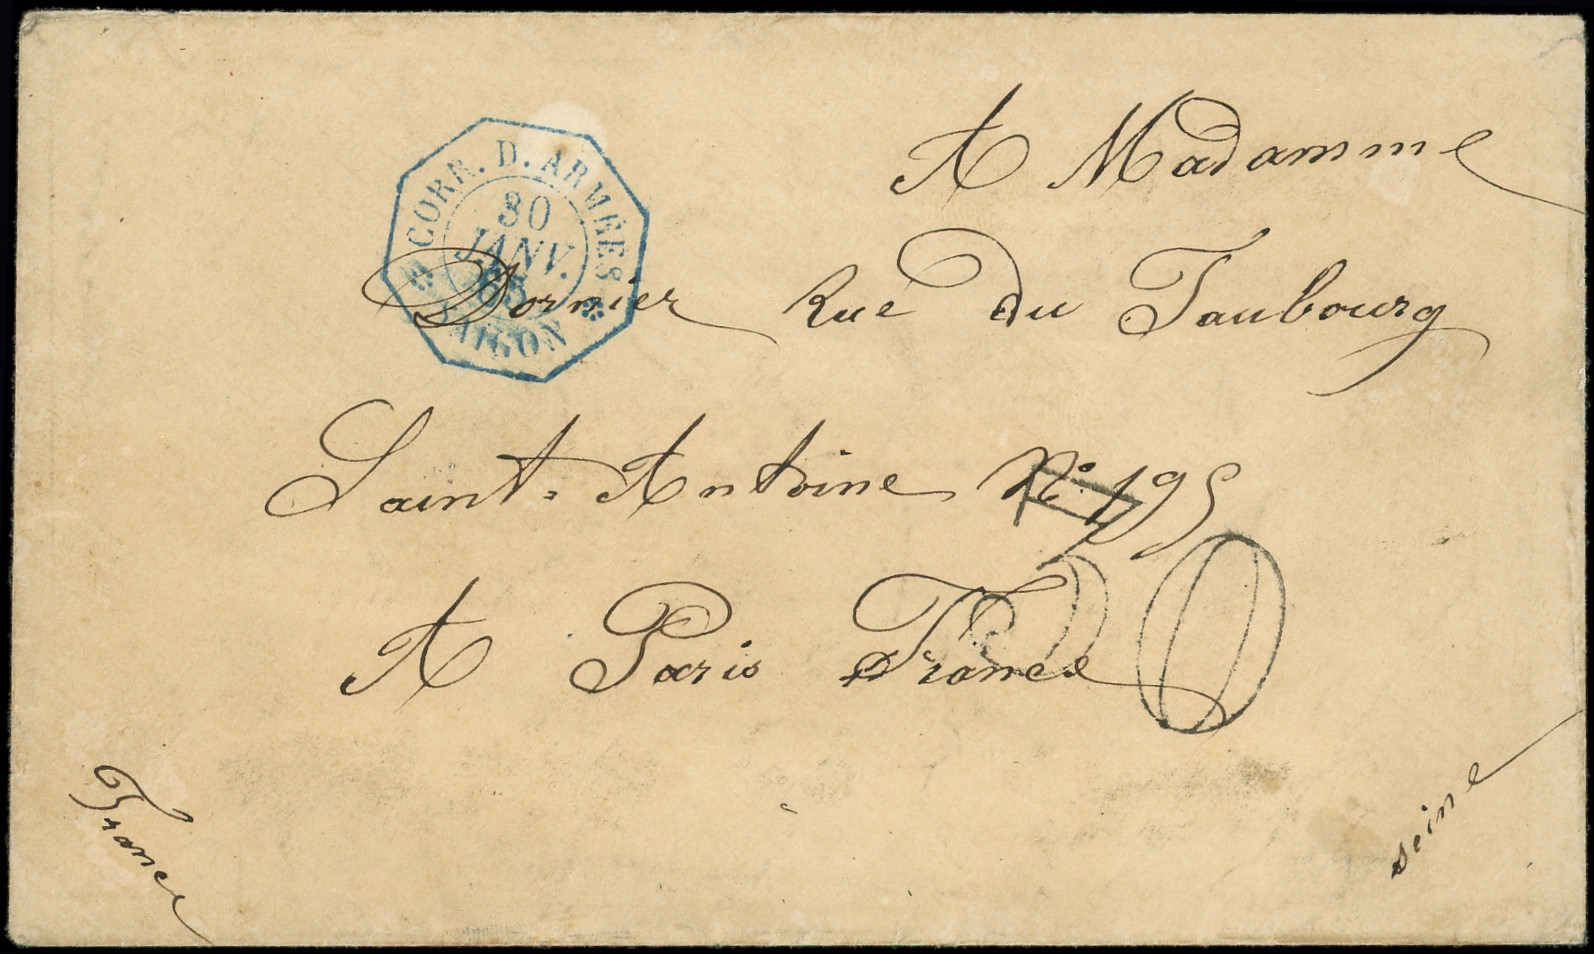 CORR. D. ARMÉES
30
JANV.
65
SAIGON
A Madamme
Dornier Rue du Faubourg
Saint. Antoine N° 195
A Paris France
30
France
seine